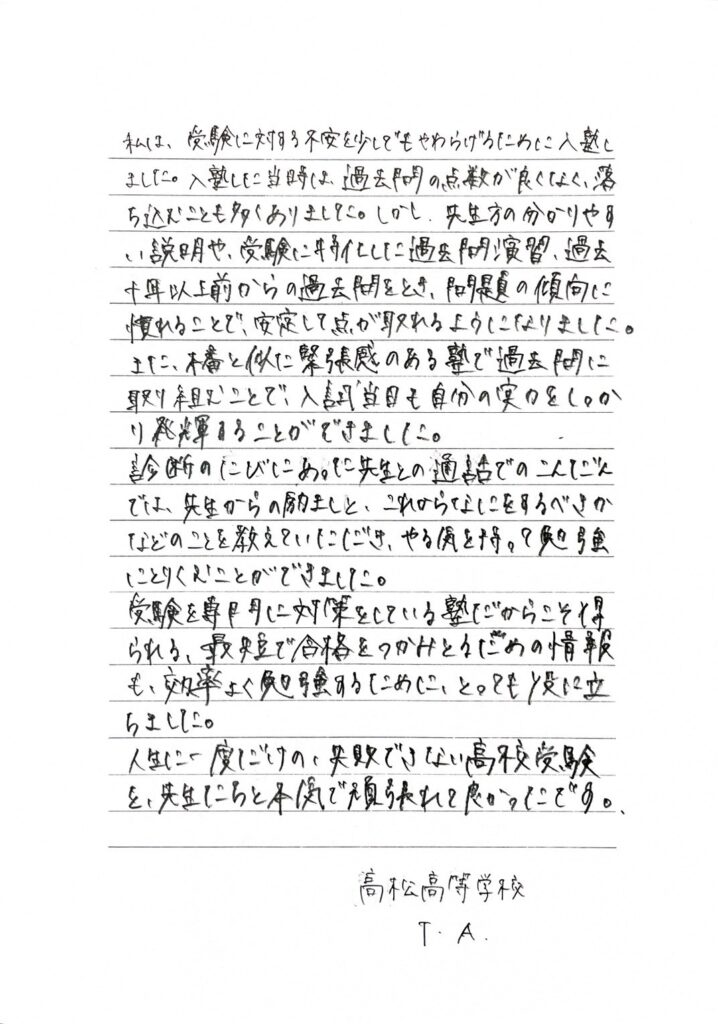 私は、受験に対する不安を少しでもやわらげるために入塾し
ました。入塾した当時は、過去問の点数が良くなく、落
ち込むことも多くありました。しかし、先生方の分かりやす
い説明や、受験に特化した過去問演習、過去
十年以上前からの過去問をとき、問題の傾向に
慣れることで、安定して点が取れるようになりました。
また、本番と似た緊張感のある塾で過去問に
取り組むことで、入試当日も自分の実力をしっか
り発揮することができました。
診断のたびにあった先生との通話でのこんだん
では、先生からの励ましと、これからなにをするべきか
などのことを教えていただき、やる気を持って勉強
にとりくむことができました。
受験を専門に対策をしている塾だからこそ得
られる、最短で合格をつかみとるための情報
も、効率よく勉強するために、とっても役に立
ちました。
人生に一度だけの、失敗できない高校受験
を、先生たちと本気で頑張れて良かったです。
高松高等学校
T. A.